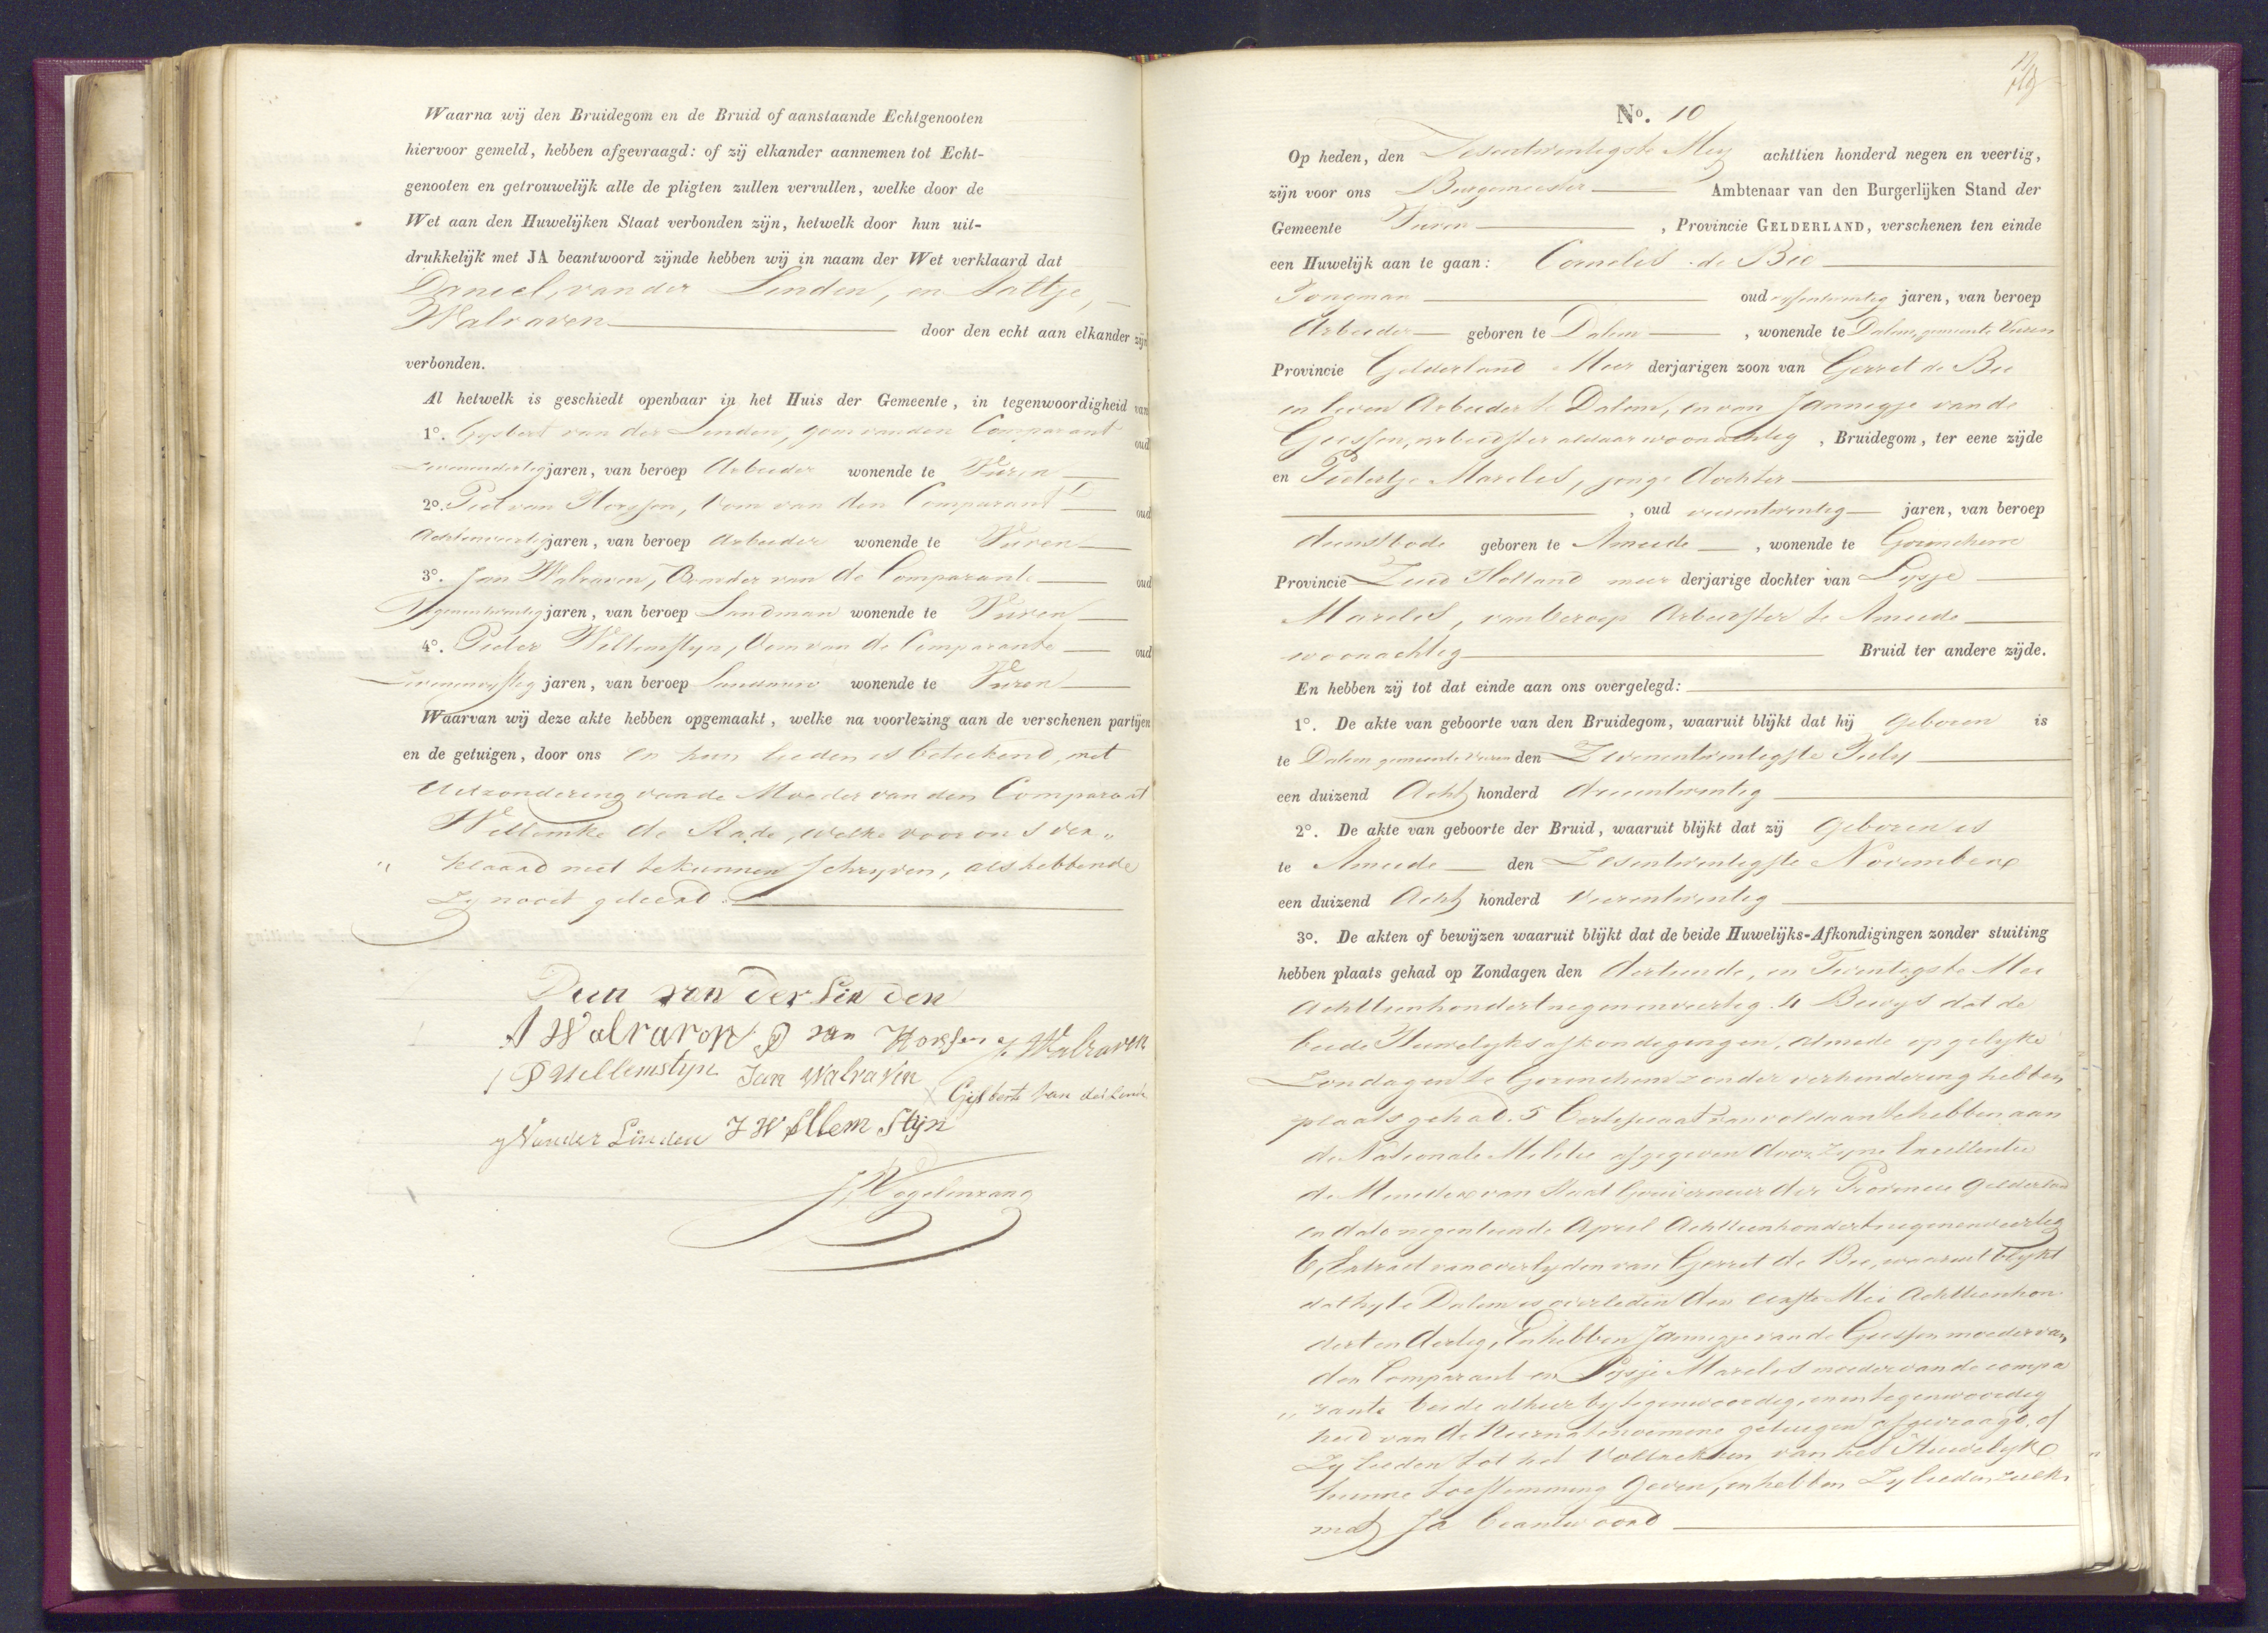 Waarna wij den Bruidegom en de Bruid of aanstaande Echtgenooten
hiervoor gemeld, hebben afgevraagd: of zij elkander aannemen tot Echt-
genooten en getrouwelijk alle de pligten zullen vervullen, welke door de
Wet aan den Huwelijken Staat verbonden zijn, hetwelk door hun uit-
drukkelijk met JA beantwoord zijnde hebben wij in naam der Wet verklaard dat
Daniel, van der Linden, en Aaltje,
Walraven door den echt aan elkander zijn
verbonden.
Al hetwelk is geschiedt openbaar in het Huis der Gemeente, in tegenwoordigheid van
1º. Gysbert van der Linden, Oom van den Comparant oud
jaren, van beroep Arbeider wonende te Vuren
2º. Piet van Horssen, Oom van den Comparant oud
Achtenveertig jaren, van beroep Arbeider wonende te Vuren
3º. Jan Walraven, Broeder van de Comparante oud
Negenentwintig jaren, van beroep Landman wonende te Vuren
4º. Pieter Willemstyn, Oom van de Comparante oud
Zevenenvyftig jaren, van beroep Landman wonende te Vuren
Waarvan wij deze akte hebben opgemaakt, welke na voorlezing aan de verschenen partijen
en de getuigen, door ons en hun lieden is beteekend, met
Uitzondering van de Moeder van den Comparant
Willemke de Rade, welke voor ons ver„
„ klaard niet te kunnen schryven, als hebbende
Zy nooit geleerd.
Daan van der Linden
A Walraven P van Horssen J. Walraven
P Willemstyn Jan Walraven
Gijsbert van der Linde
van der Linden J Willem Stijn
Vogelenzang
Nº. 10
Op heden, den Zesentwintigste Mey achttien honderd negen en veertig,
zijn voor ons Burgemeester Ambtenaar van den Burgerlijken Stand der
Gemeente Vuren, Provincie GELDERLAND, verschenen ten einde
een Huwelijk aan te gaan: Cornelis de Bie
Jongman oud vyfentwintig jaren, van beroep
Arbeider geboren te Dalem, wonende te Dalem, gemeente Vuren
Provincie Gelderland Meer derjarigen zoon van Gerret de Bie
in leven Arbeider te Dalem, en van Jannegje van de
Giessen, arbeidster aldaar woonachtig, Bruidegom, ter eene zijde
en Pietertje Marelis, jonge dochter
, oud vierentwintig jaren, van beroep
dienstbode geboren te Ameide, wonende te Gorinchem
Provincie Zuid Holland meer derjarige dochter van Lysje
Marelis, van beroep Arbeidster te Ameide
woonachtig Bruid ter andere zijde.
En hebben zij tot dat einde aan ons overgelegd:
1º. De akte van geboorte van den Bruidegom, waaruit blijkt dat hij Geboren is
te Dalem gemeente Vuren den Zevenentwintigste July
een duizend Acht honderd drieentwintig
2º. De akte van geboorte der Bruid, waaruit blijkt dat zij Geboren is
te Ameide den Zesentwintigste November
een duizend Acht honderd Vierentwintig
3º. De akten of bewijzen waaruit blijkt dat de beide Huwelijks-Afkondigingen zonder stuiting
hebben plaats gehad op Zondagen den dertiende, en Twintigste Mei
Achttienhondertnegenenveertig. 4 Bewys dat de
beide Huwelyks afkondigingen, almede op gelyke
Zondagen te Gorinchem zonder verhindering hebben
plaats gehad. 5 Certificaat van voldaan te hebben aan
de Nationale Militie afgegeven door Zyne Excellentie
de Minister van Staat Gouverneur der Provincie Gelderland
in dato negentiende April Achttienhondertnegenenveertig
6, Extract van overlyden van Gerret de Bie, waaruit blykt
dat hy te Dalem is overleden den eerste Mei Achttienhon
derten dertig, En hebben Jannegje van de Giessen moeder van
den Comparant en Lysje Marelis moeder van de compa
„ rante beide alhier by tegenwoordig, en in tegenwoordig
heid van de Hiernatenoemene getuigen afgevraagd, of
Zy lieden tot het Voltrekken van het Huwelyk
hunne toestemming Geven, en hebben Zy lieden zulks
met Ja beantwoord